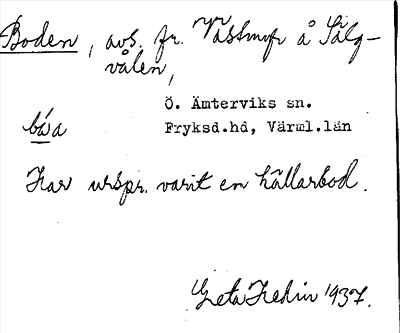 Boden, avs. fr. Västmyr å Sälg-
vålen,
Ö. Ämterviks sn.
båa Fryksd.hd, Värml.län
Har urspr. varit en hållarbod.
Greta Hedin 1937.